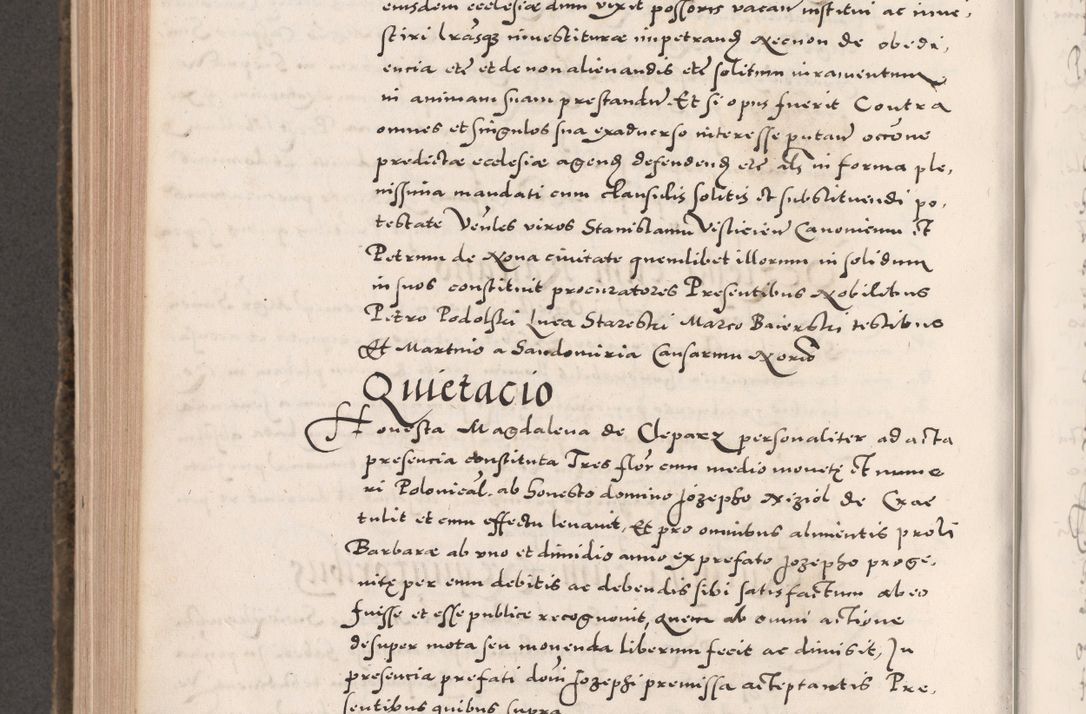 eiusdem ecclesiæ dum vixit possoris vacan̄ institui ac inve,
stiri l͞rasq; investituræ impetrand̨ Necnon de obedi,
encia et͞c et de non alienandis et͞c solitum iuramentum
in animam suam prestandu͞ Et si opus fuerit Contra
omnes et singulos sua ex adverso interesse putan̄ occ͞one
predictæ ecclesiæ agend̨ defendend̨ et͞c als in forma ple,
nissima mandati cum clausulis solitis et substituendi po,
testate Ven͞les viros Stanislaum Visticien̄ Canonicum et
Petrum de Nova civitate quemlibet illorum in solidum
in suos constituit procuratores Presentibus Nobilibus
Petro Podolski Luca Stareski Marco Baierski testibus
Et Martino a Sandomiria Causarum Nor͞io
Quietacio
Honesta Magdalena de Cleparz personaliter ad acta
presencia constituta Tres flor͞ cum medio monetę et nume
ri Polonical͞. ab honesto domino Jozepho Niziol de Crac
tulit et cum effectu levavit, Et pro omnibus alimentis proli
Barbaræ ab uno et dimidio anno ex prefato Jozepho proge,
nitę per eum debitis ac debendis sibi satisfactum ab eo
fuisse et esse publice recognovit, Quem ab omni actione
desuper mota seu movenda liberum fecit ac dimisit, In
presencia prefati do͞ni Jozephi premissa acceptantis Pre,
sentibus quibus supra